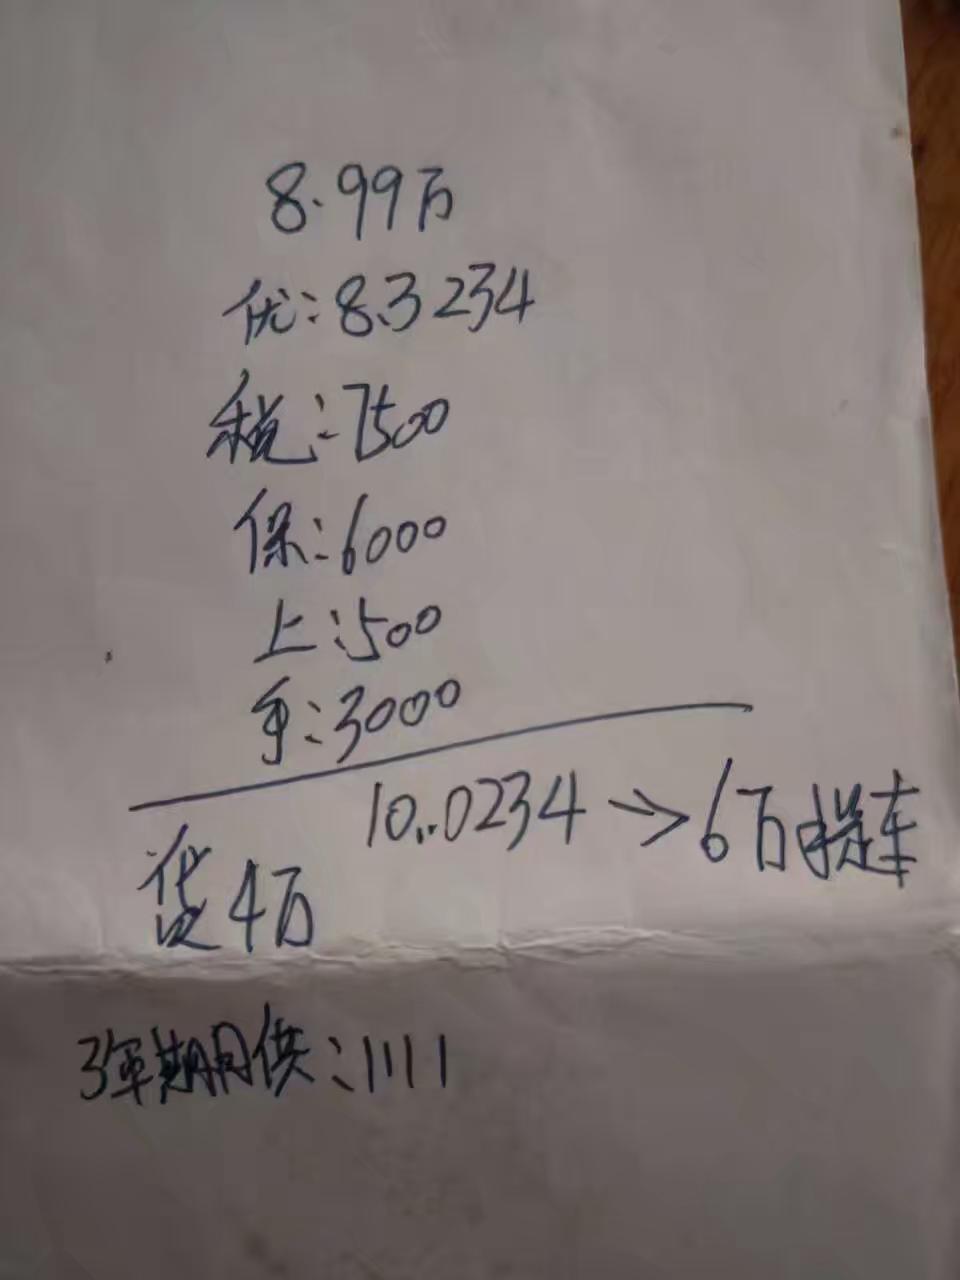 8.99万
优:8.3234
税:7500
保:6000
上:500
手:3000
10..0234→6万提车
贷4万
3年期月供:1111